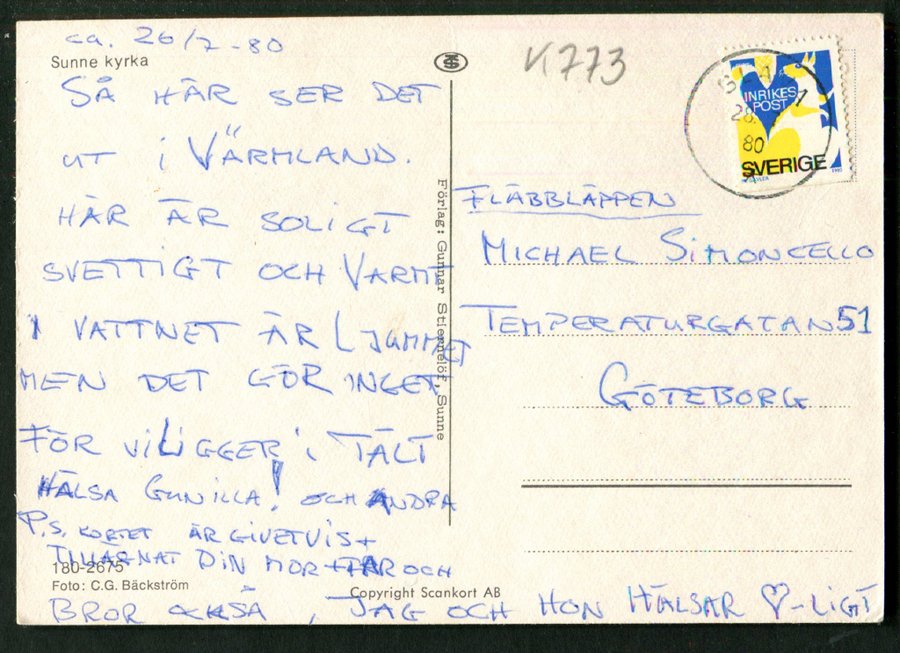 ca. 26/7-80
Sunne kyrka
SÅ HÄR SER DET
UT I VÄRMLAND.
HÄR ÄR SOLIGT
SVETTIGT OCH VARMT
I VATTNET ÄR LJUMMET
MEN DET GÖR INGET
FÖR VI LIGGER I TÄLT
HÄLSA GUNILLA! OCH ANDRA
P.S. KORTET ÄR GIVETVIS
TILLÄGNAT DIN MOR + FAR OCH
180-2675
Foto: C.G. Bäckström
BROR OCKSÅ, JAG OCH HON HÄLSAR ♡-LIGT
Förlag: Gunnar Stiernelöf, Sunne
Copyright Scankort AB
K773
INRIKES
POST
SVERIGE
28.
80
FLÄBBLÄPPEN
MICHAEL SIMONCELLO
TEMPERATURGATAN 51
GÖTEBORG